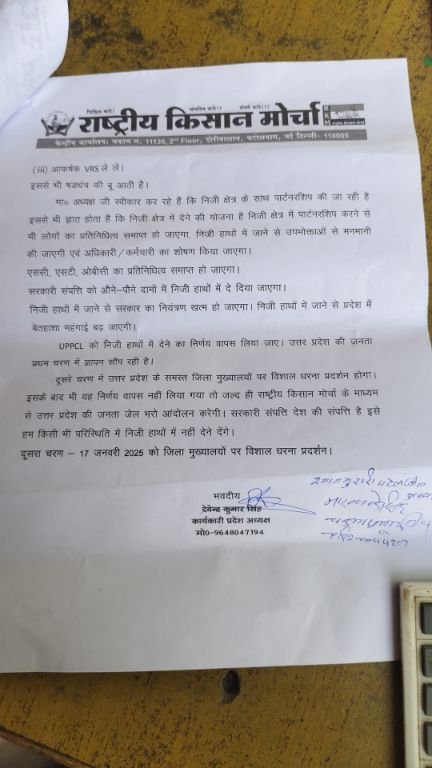 शिक्षित करो! संगठित करो!! संघर्ष करो!!!
राष्ट्रीय किसान मोर्चा
केन्द्रीय कार्यालय: मकान नं. 11135, 2nd Floor, डोरीवालान, करोलबाग, नई दिल्ली- 110005
(iii) आकर्षक VRS ले लें।
इससे भी षडयंत्र की बू आती है।
मा० अध्यक्ष जी स्वीकार कर रहे हैं कि निजी क्षेत्र के साथ पार्टनरशिप की जा रही है
इससे भी ज्ञात होता है कि निजी क्षेत्र में देने की योजना है निजी क्षेत्र में पार्टनरशिप करने से
भी लोगों का प्रतिनिधित्व समाप्त हो जाएगा, निजी हाथों में जाने से उपभोक्ताओं से मनमानी
की जाएगी एवं अधिकारी/कर्मचारी का शोषण किया जाएगा।
एससी, एसटी, ओबीसी का प्रतिनिधित्व समाप्त हो जाएगा।
सरकारी संपत्ति को औने-पौने दामों में निजी हाथों में दे दिया जाएगा।
निजी हाथों में जाने से सरकार का नियंत्रण खत्म हो जाएगा। निजी हाथों में जाने से प्रदेश में
बेतहाशा महंगाई बढ़ जाएगी।
UPPCL को निजी हाथों में देने का निर्णय वापस लिया जाए। उत्तर प्रदेश की जनता
प्रथम चरण में ज्ञापन सौंप रही है।
दूसरे चरण में उत्तर प्रदेश के समस्त जिला मुख्यालयों पर विशाल धरना प्रदर्शन होगा।
इसके बाद भी यह निर्णय वापस नहीं लिया गया तो जल्द ही राष्ट्रीय किसान मोर्चा के माध्यम
से उत्तर प्रदेश की जनता जेल भरो आंदोलन करेगी। सरकारी संपत्ति देश की संपत्ति है इसे
हम किसी भी परिस्थिति में निजी हाथों में नही देने देंगे।
दूसरा चरण – 17 जनवरी 2025 को जिला मुख्यालयों पर विशाल धरना प्रदर्शन।
भवदीय
देवेन्द्र कुमार सिंह
कार्यकारी प्रदेश अध्यक्ष
मो0-9648047194